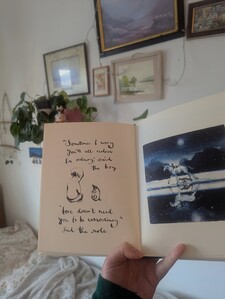 "Sometimes I worry
you'll all realise
I'm ordinary," said
the boy.
"Love doesn't need
you to be extraordinary,"
said the mole.